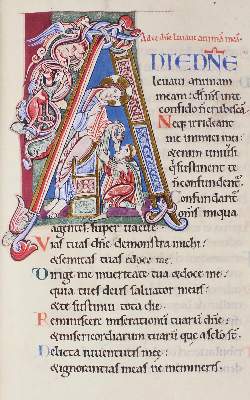 Ad te dñe levavi animā meā
AD TE DÑE
levavi animam
meam: dš mš inte
confido n erubescā
Neqꝫ irrideant
me inimici mei:
&enim univsi
q sustinent te
n confundent
Confundant
oms iniqua
agentes: super vacue
Vias tuas dñe demonstra michi:
&semitas tuas edoce me.
Dirige me inveritate tua &doce me:
quia tu es deus salvator meus
&te sustinui tota die.
Reminiscere miserationū tuarū dñe:
&misericordiarum tuarū que asclo st.
Delicta iuventutis meę:
&ignorantias meas ne memineris.